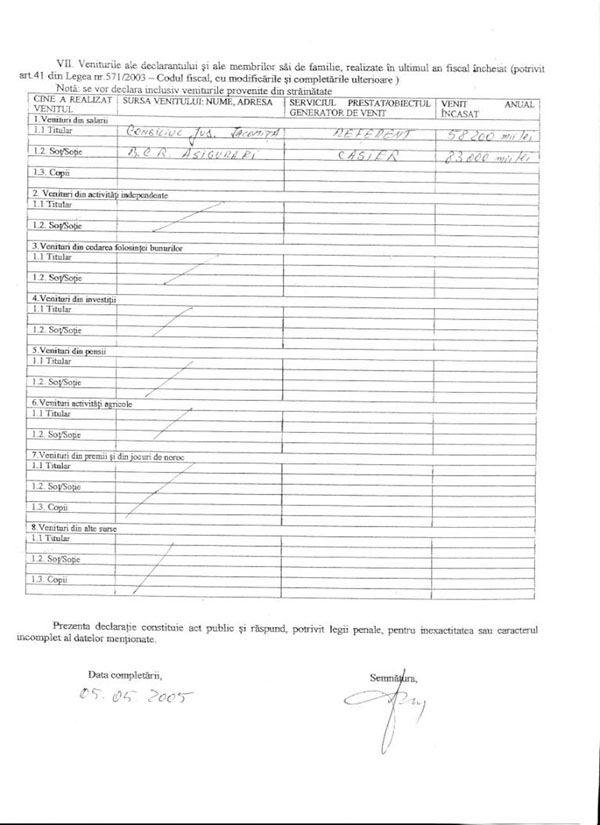 VII. Veniturile ale declarantului și ale membrilor săi de familie, realizate în ultimul an fiscal încheiat (potrivit
art.41 din Legea nr.571/2003 – Codul fiscal, cu modificările și completările ulterioare )
Notă: se vor declara inclusiv veniturile provenite din străinătate
CINE A REALIZAT VENITUL SURSA VENITULUI: NUME, ADRESA SERVICIUL PRESTAT/OBIECTUL GENERATOR DE VENIT VENIT ANUAL ÎNCASAT
1.Venituri din salarii
1.1 Titular CONSILIUL JUD. IALOMIȚA REFERENT 58200 mii/lei
1.2. Soț/Soție B.C.R. ASIGURARI CASIER 83000 mii/lei
1.3. Copii
2. Venituri din activități independente
1.1 Titular
1.2. Soț/Soție
3.Venituri din cedarea folosinței bunurilor
1.1 Titular
1.2. Soț/Soție
4.Venituri din investiții
1.1 Titular
1.2. Soț/Soție
5.Venituri din pensii
1.1 Titular
1.2. Soț/Soție
6.Venituri activități agricole
1.1 Titular
1.2. Soț/Soție
7.Venituri din premii și din jocuri de noroc
1.1 Titular
1.2. Soț/Soție
1.3. Copii
8.Venituri din alte surse
1.1 Titular
1.2. Soț/Soție
1.3. Copii
Prezenta declarație constituie act public și răspund, potrivit legii penale, pentru inexactitatea sau caracterul
incomplet al datelor menționate.
Data completării, Semnătura,
05.05.2005